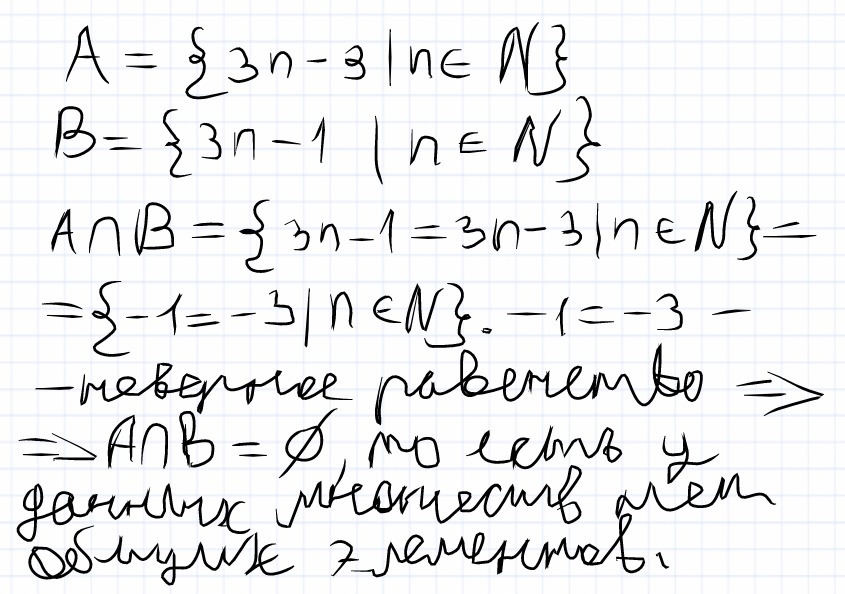 A = {3n - 3 | n ∈ N}
B = {3n - 1 | n ∈ N}
A∩B = {3n - 1 = 3n - 3 | n ∈ N} =
= {-1 = -3 | n ∈ N}. -1 = -3 -
- неверное равенство =>
=> A∩B = ∅, то есть у
данных множеств нет
общих элементов.